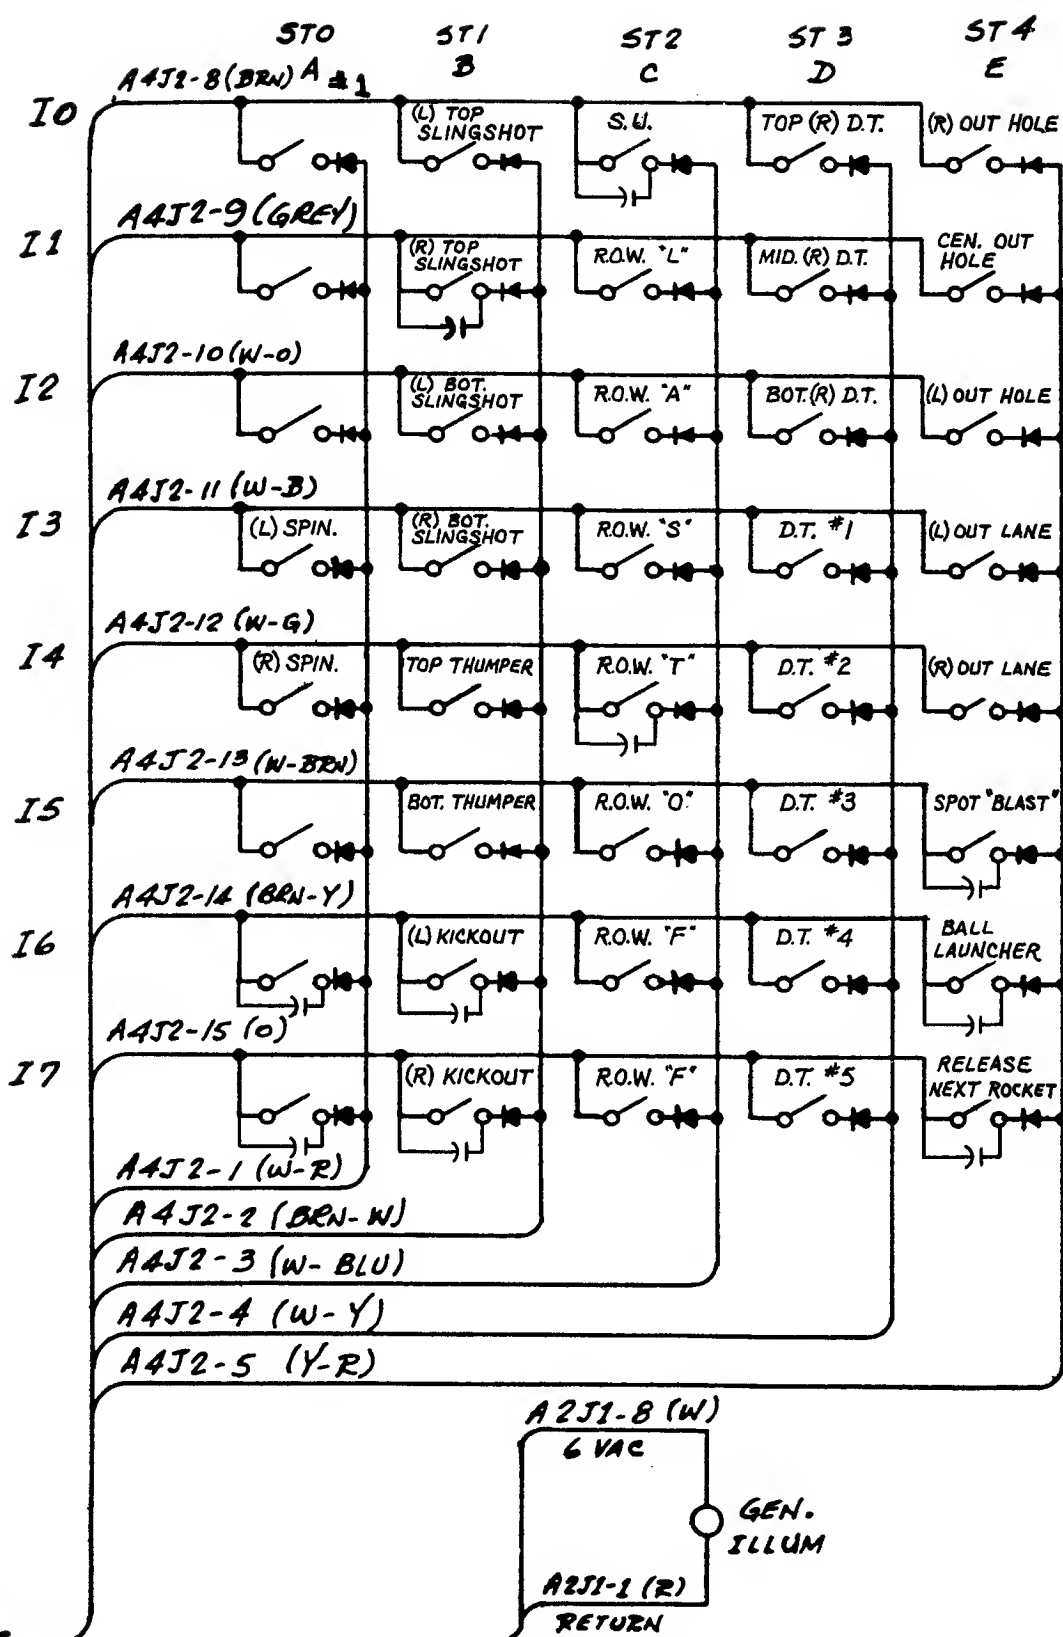 ST0 ST1 ST2 ST3 ST4
A B C D E
A4J2-8 (BRN) #1
I0
(L) TOP SLINGSHOT
S.U.
TOP (R) D.T.
(R) OUT HOLE
A4J2-9 (GREY)
I1
(R) TOP SLINGSHOT
R.O.W. "L"
MID. (R) D.T.
CEN. OUT HOLE
A4J2-10 (W-O)
I2
(L) BOT. SLINGSHOT
R.O.W. "A"
BOT. (R) D.T.
(L) OUT HOLE
A4J2-11 (W-B)
I3
(L) SPIN.
(R) BOT. SLINGSHOT
R.O.W. "S"
D.T. #1
(L) OUT LANE
A4J2-12 (W-G)
I4
(R) SPIN.
TOP THUMPER
R.O.W. "T"
D.T. #2
(R) OUT LANE
A4J2-13 (W-BRN)
I5
BOT. THUMPER
R.O.W. "O"
D.T. #3
SPOT "BLAST"
A4J2-14 (BRN-Y)
I6
(L) KICKOUT
R.O.W. "F"
D.T. #4
BALL LAUNCHER
A4J2-15 (O)
I7
(R) KICKOUT
R.O.W. "F"
D.T. #5
RELEASE NEXT ROCKET
A4J2-1 (W-R)
A4J2-2 (BRN-W)
A4J2-3 (W-BLU)
A4J2-4 (W-Y)
A4J2-5 (Y-R)
A2J1-8 (W)
6 VAC
GEN.
ILLUM
A2J1-1 (R)
RETURN